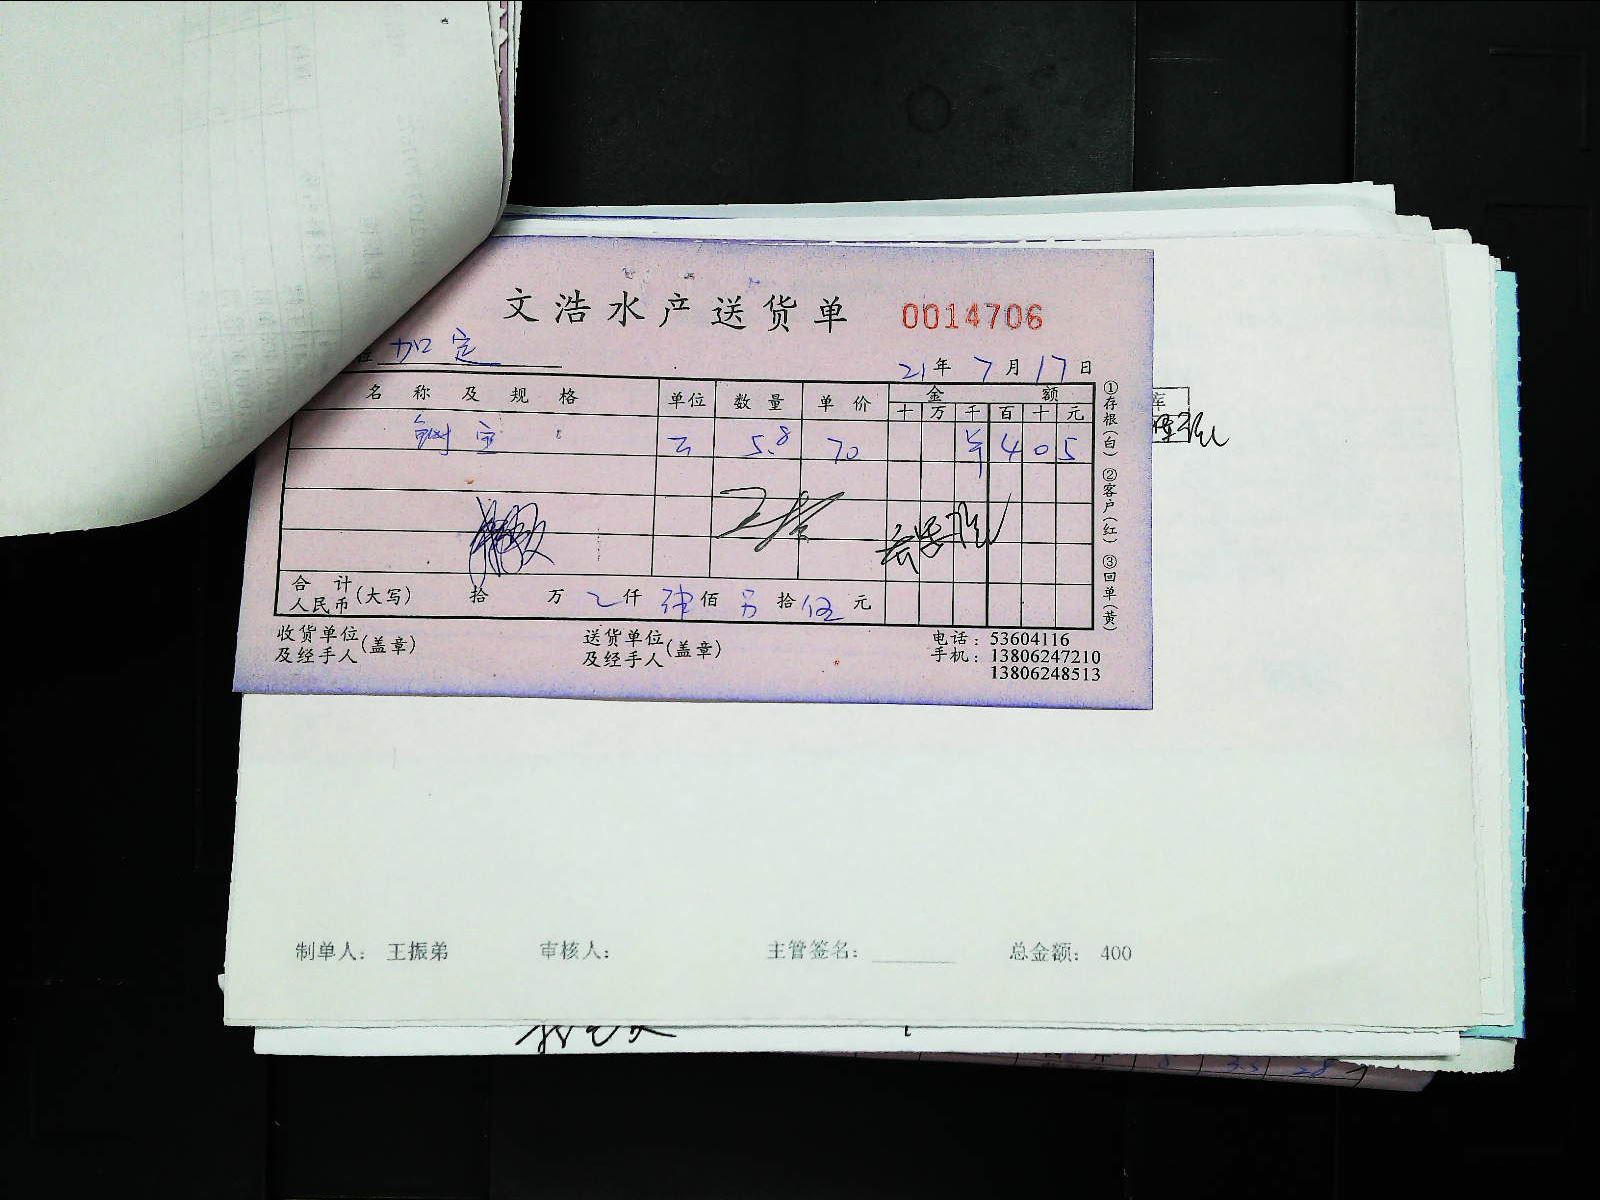 文浩水产送货单 0014706
加定
21年 7月 17日
名称及规格 单位 数量 单价 金额
十 万 千 百 十 元
5.8 70 4 0 5
合计
人民币(大写) 拾 万 仟 佰 拾 伍 元
收货单位
及经手人(盖章)
送货单位
及经手人(盖章)
电话：53604116
手机：13806247210
13806248513
①存根(白) ②客户(红) ③回单(黄)
库
制单人： 王振弟 审核人： 主管签名： 总金额： 400